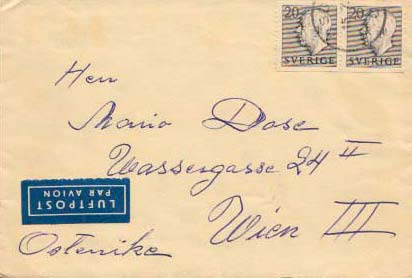 20 20
SVERIGE SVERIGE
Herr
Mario Dose
Wassergasse 24 II
LUFTPOST
PAR AVION
Wien III
Österrike